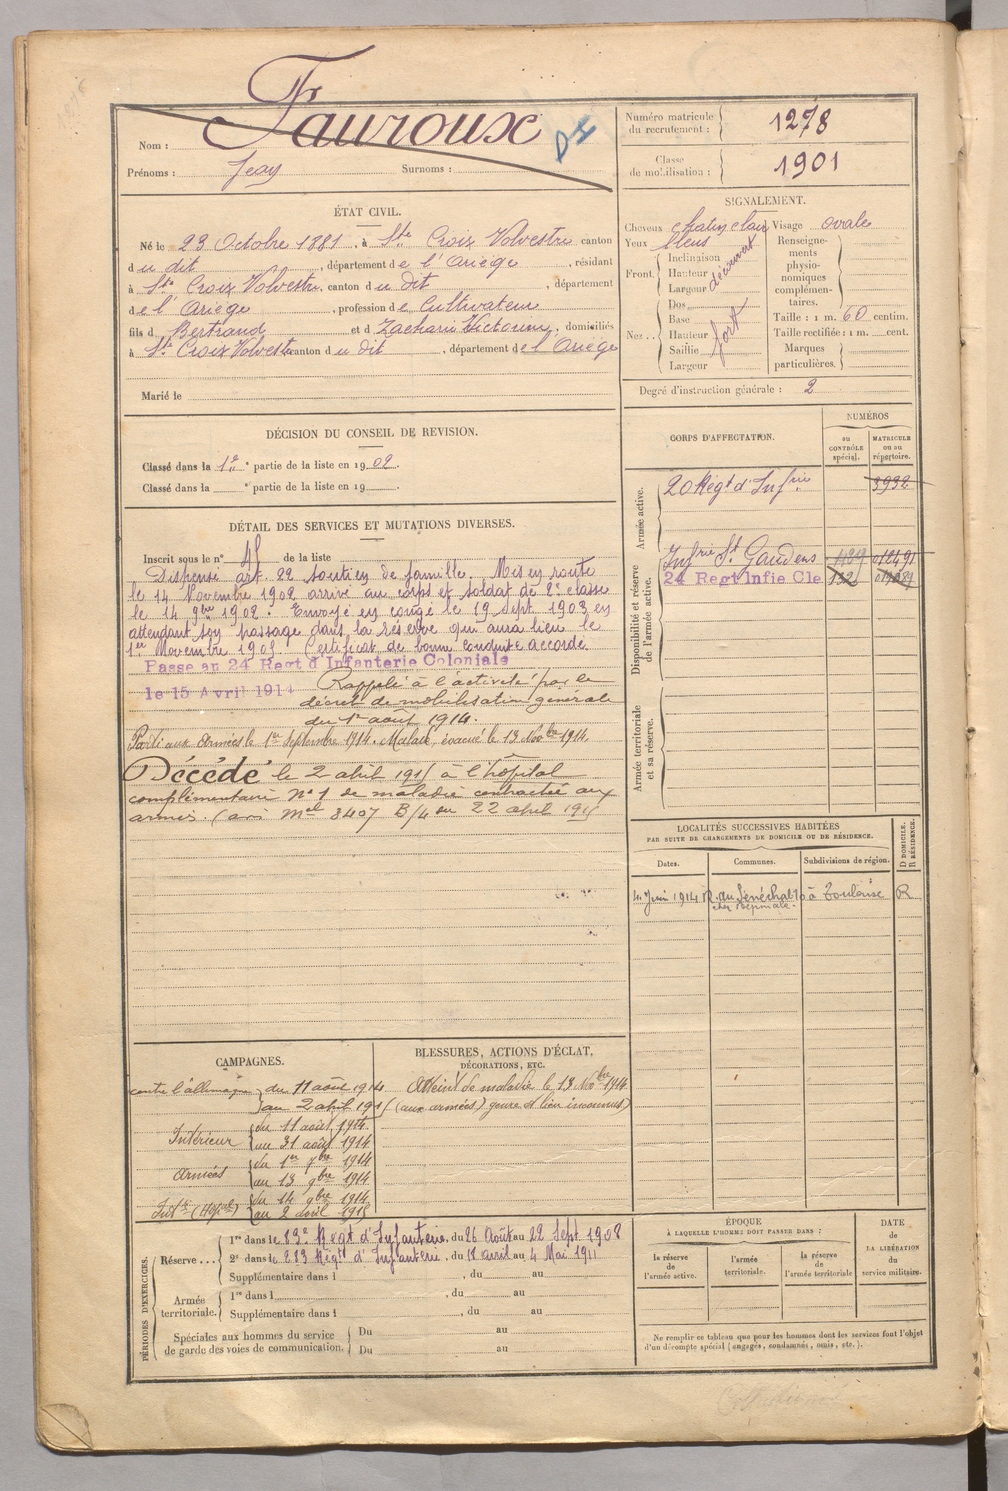 Nom : Fauroux
Prénoms : Jean Surnoms :
Numéro matricule du recrutement : 1278
Classe de mobilisation : 1901
ÉTAT CIVIL.
Né le 23 Octobre 1881, à Ste Croix Volvestre canton
du dit, département de l'Ariège, résidant
à Ste Croix Volvestre, canton du dit, département
de l'Ariège, profession de Cultivateur
fils d Bertrand et d Zacharie Victorine, domiciliés
à Ste Croix Volvestre canton du dit, département de l'Ariège
Marié le
SIGNALEMENT.
Cheveux chatin clair Visage ovale
Yeux bleus
Front. Inclinaison
Hauteur découvert
Largeur
Nez.. Dos
Base
Hauteur fort
Saillie
Largeur
Renseignements physionomiques complémentaires.
Taille : 1 m. 60 centim.
Taille rectifiée : 1 m. cent.
Marques particulières.
Degré d'instruction générale : 2
DÉCISION DU CONSEIL DE REVISION.
Classé dans la 1e partie de la liste en 1902.
Classé dans la e partie de la liste en 19
DÉTAIL DES SERVICES ET MUTATIONS DIVERSES.
Inscrit sous le n° 45 de la liste
Dispensé art. 22 soutien de famille. Mis en route
le 14 Novembre 1902 arrivé au corps et soldat de 2e classe
le 14 9bre 1902. Envoyé en congé le 19 Sept 1903 en
attendant son passage dans la réserve qui aura lieu le
1er Novembre 1905. Certificat de bonne conduite accordé
Passé au 24 Regt d'Infanterie Coloniale
le 15 Avril 1914 Rappelé à l'activité par le
décret de mobilisation générale
du 1er août 1914.
Parti aux Armées le 1er Septembre 1914. Malade, évacué le 13 Novbre 1914.
Décédé le 2 abril 1915 à l'hôpital
complémentaire N° 1 de maladie contractée aux
armées. (avis Mel 8407 B/4 du 22 abril 1915
CORPS D'AFFECTATION.
NUMÉROS
au CONTRÔLE spécial.
MATRICULE ou au répertoire.
Armée active.
20 Régt d'Infrie 3932
Disponibilité et réserve de l'armée active.
Infrie St Gaudens 012491
24 Regt Infie Cle
Armée territoriale et sa réserve.
LOCALITÉS SUCCESSIVES HABITÉES
PAR SUITE DE CHANGEMENTS DE DOMICILE OU DE RÉSIDENCE.
Dates. Communes. Subdivisions de région. D DOMICILE. R RÉSIDENCE.
4 Juin 1914 R. du Sénéchal 10 à Toulouse R
CAMPAGNES.
contre l'allemagne du 11 août 1914
au 2 abril 1915
Intérieur du 11 août 1914.
au 31 août 1914
Armées du 1er 7bre 1914
au 13 9bre 1914
Intr (Hôpal) du 14 9bre 1914
au 2 avril 1915
BLESSURES, ACTIONS D'ÉCLAT, DÉCORATIONS, ETC.
Atteint de maladie le 13 Novbre 1914
(aux armées) genre et lieu inconnus)
PÉRIODES D'EXERCICES.
Réserve... 1re dans le 83e Regt d'Infanterie, du 26 Août au 22 Sept 1908
2e dans le 283 Régt d'Infanterie. du 18 avril au 4 Mai 1911
Supplémentaire dans l , du au
Armée territoriale. 1re dans l , du au
Supplémentaire dans l , du au
Spéciales aux hommes du service de garde des voies de communication. Du au
Du au
ÉPOQUE
À LAQUELLE L'HOMME DOIT PASSER DANS :
la réserve de l'armée active.
l'armée territoriale.
la réserve de l'armée territoriale
DATE DE LA LIBÉRATION du service militaire.
Ne remplir ce tableau que pour les hommes dont les services font l'objet
d'un décompte spécial (engagés, condamnés, omis, etc.).